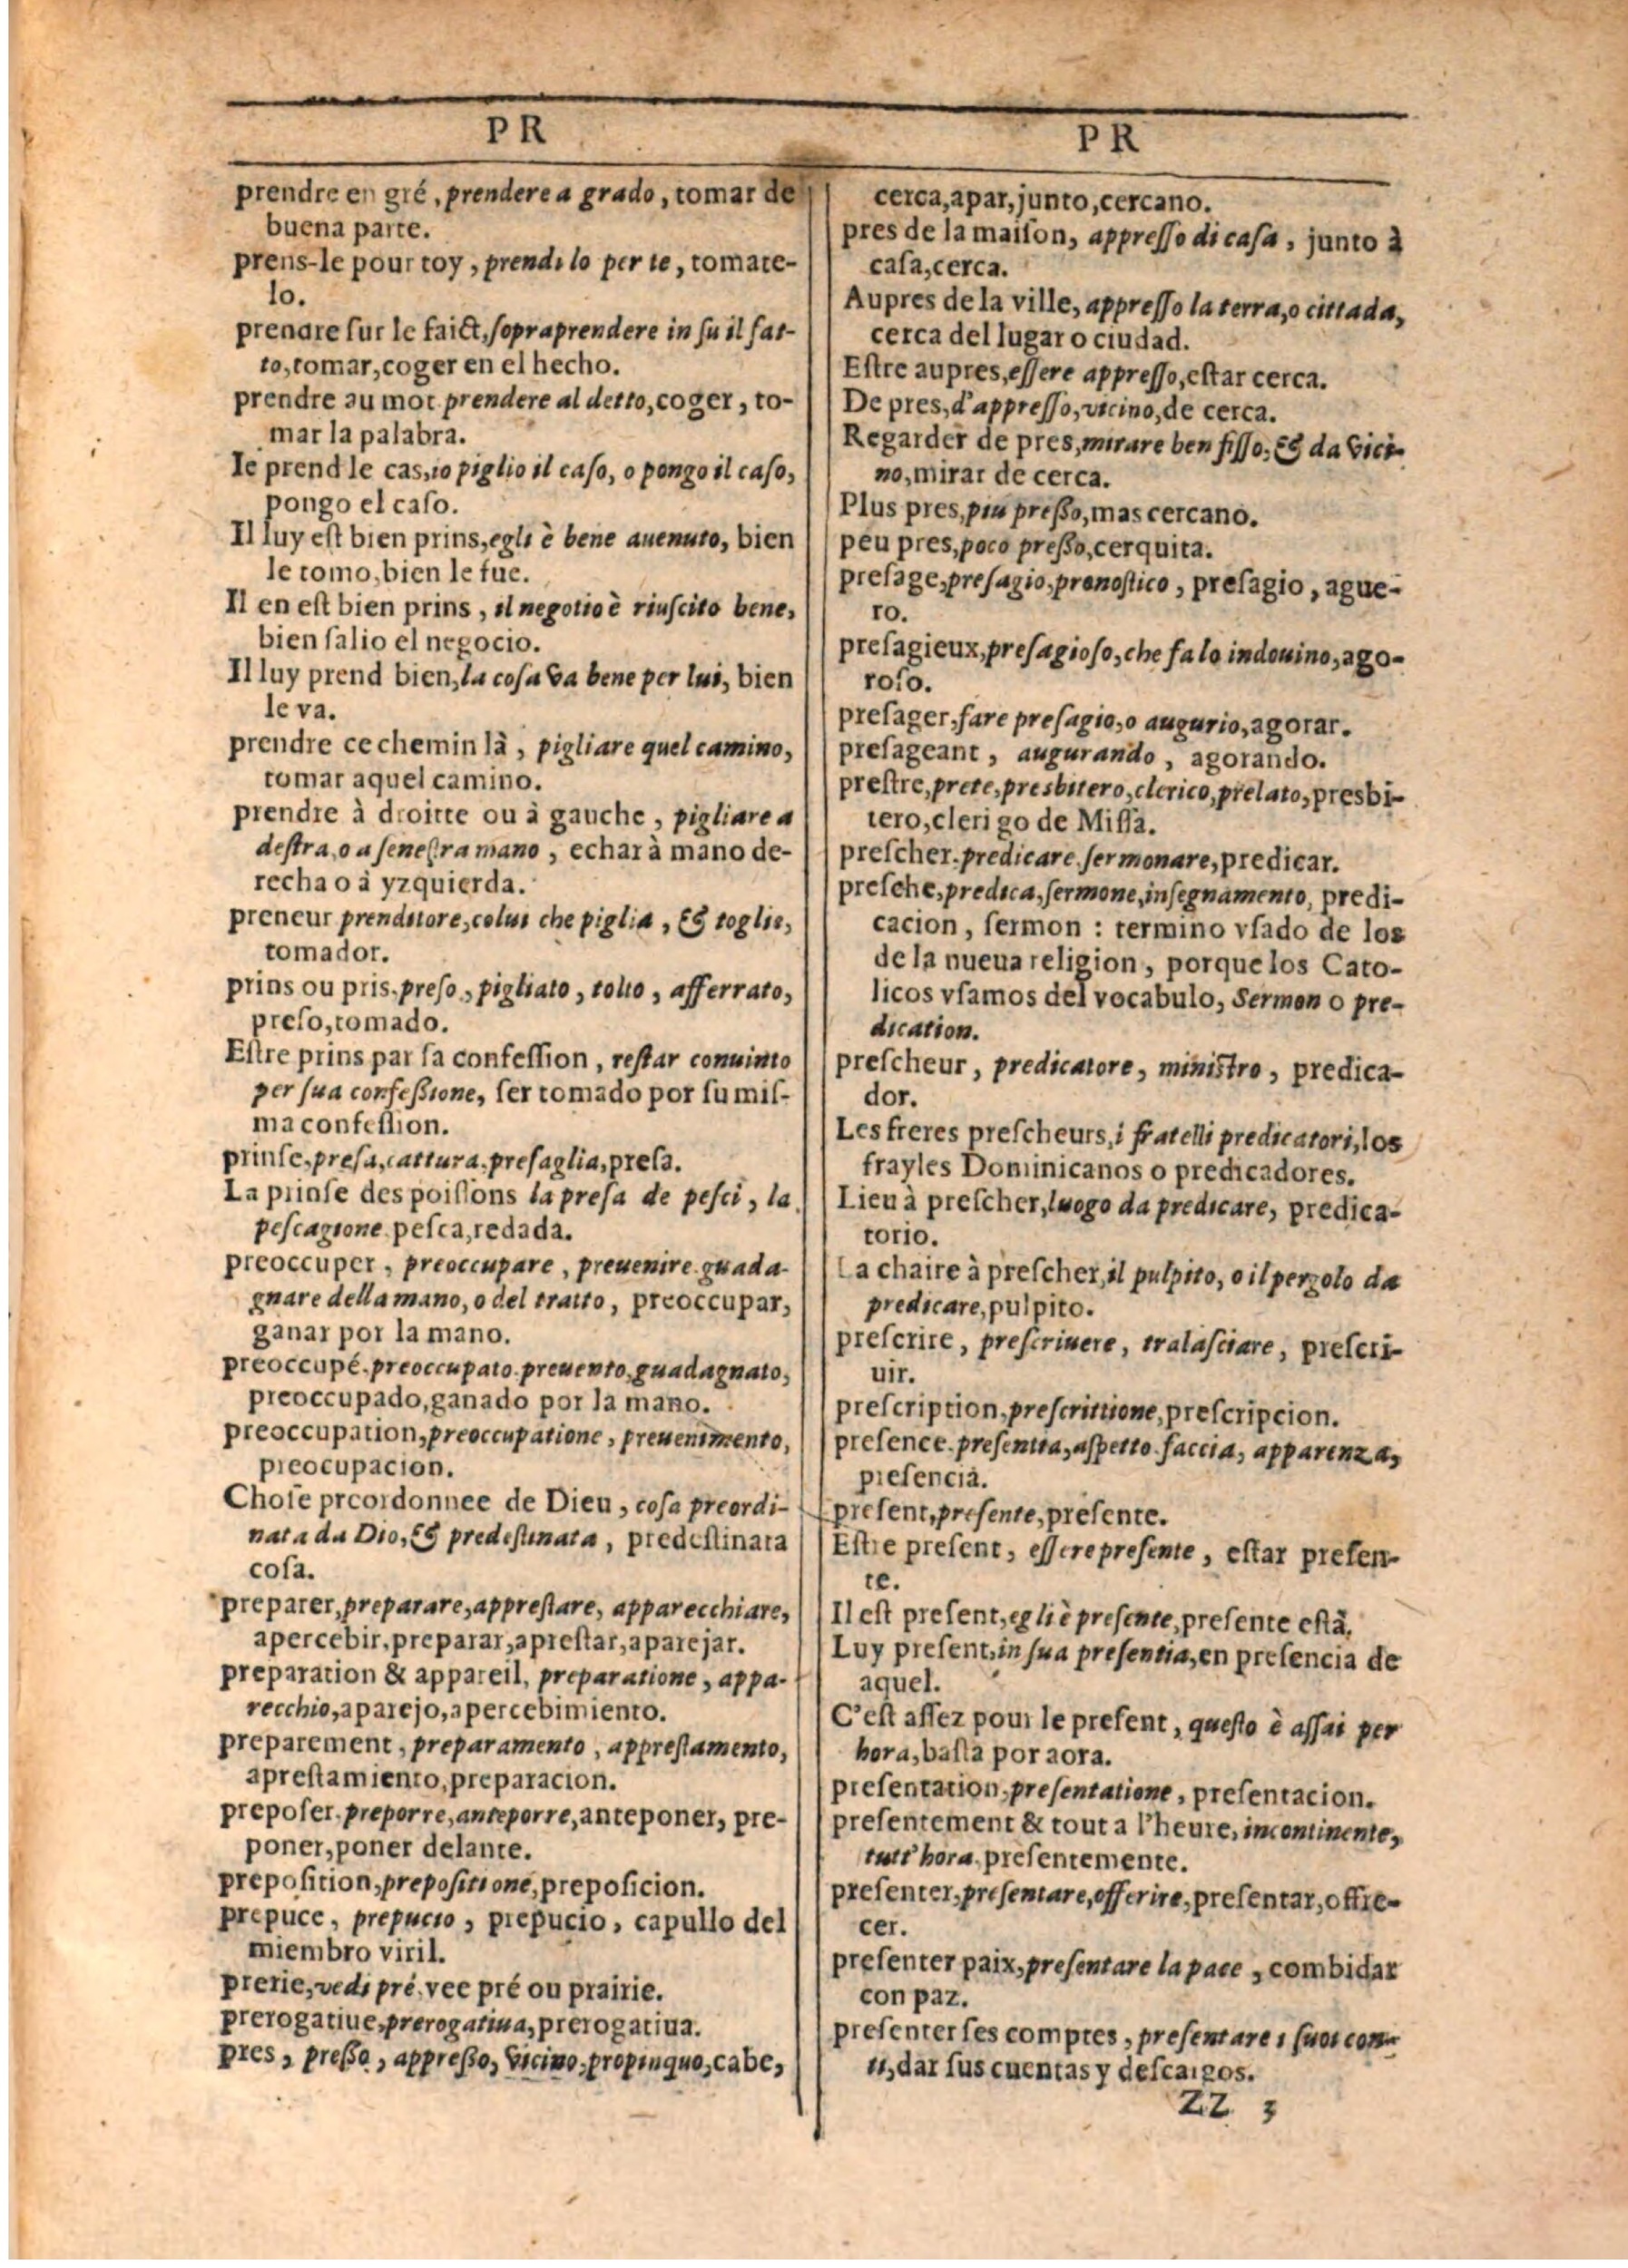 PR
prendre en gré, prendere a grado, tomar de
buena parte.
prens-le pour toy, prendi lo per te, tomate-
lo.
prendre ſur le faict, ſopraprendere in ſu il fat-
to, tomar, coger en el hecho.
prendre au mot prendere al detto, coger, to-
mar la palabra.
Ie prend le cas, io piglio il caſo, o pongo il caſo,
pongo el caſo.
Il luy eſt bien prins, egli è bene auenuto, bien
le tomo, bien le fue.
Il en eſt bien prins, il negotio è riuſcito bene,
bien ſalio el negocio.
Il luy prend bien, la coſa va bene per lui, bien
le va.
prendre ce chemin là, pigliare quel camino,
tomar aquel camino.
prendre à droitte ou à gauche, pigliare a
deſtra, o a ſeneſtra mano, echar à mano de-
recha o à yzquierda.
preneur prenditore, colui che piglia, & toglie,
tomador.
prins ou pris, preſo, pigliato, tolto, afferrato,
preſo, tomado.
Eſtre prins par ſa confeſſion, reſtar conuinto
per ſua confeßione, ſer tomado por ſu miſ-
ma confeſſion.
prinſe, preſa, cattura, preſaglia, preſa.
La prinſe des poiſſons la preſa de peſci, la
peſcagione peſca, redada.
preoccuper, preoccupare, preuenire guada-
gnare della mano, o del tratto, preoccupar,
ganar por la mano.
preoccupé. preoccupato. preuento, guadagnato,
preoccupado, ganado por la mano.
preoccupation, preoccupatione, preuenimento,
preocupacion.
Choſe preordonnee de Dieu, coſa preordi-
nata da Dio, & predeſtinata, predeſtinata
coſa.
preparer, preparare, appreſtare, apparecchiare,
apercebir, preparar, apreſtar, aparejar.
preparation & appareil, preparatione, appa-
recchio, aparejo, apercebimiento.
preparement, preparamento, appreſtamento,
apreſtamiento, preparacion.
prepoſer, preporre, anteporre, anteponer, pre-
poner, poner delante.
prepoſition, prepoſitione, prepoſicion.
prepuce, prepucio, prepucio, capullo del
miembro viril.
prerie, vedi pré, vee pré ou prairie.
prerogatiue, prerogatiua, prerogatiua.
pres, preßo, appreßo, vicino, propinquo, cabe,
PR
cerca, apar, junto, cercano.
pres de la maiſon, appreſſo di caſa, junto à
caſa, cerca.
Aupres de la ville, appreſſo la terra, o cittada,
cerca del lugar o ciudad.
Eſtre aupres, eſſere appreſſo, eſtar cerca.
De pres, d'appreſſo, vicino, de cerca.
Regarder de pres, mirare ben fiſſo, & da vici-
no, mirar de cerca.
Plus pres, piu preßo, mas cercano.
peu pres, poco preßo, cerquita.
preſage, preſagio, pronoſtico, preſagio, ague-
ro.
preſagieux, preſagioſo, che fa lo indouino, ago-
roſo.
preſager, fare preſagio, o augurio, agorar.
preſageant, augurando, agorando.
preſtre, prete, presbitero, clerico, prelato, presbi-
tero, clerigo de Miſſa.
preſcher. predicare. ſermonare, predicar.
preſche, predica, ſermone, inſegnamento, predi-
cacion, ſermon : termino vſado de los
de la nueua religion, porque los Cato-
licos vſamos del vocabulo, Sermon o pre-
dication.
preſcheur, predicatore, miniſtro, predica-
dor.
Les freres preſcheurs, i fratelli predicatori, los
frayles Dominicanos o predicadores.
Lieu à preſcher, luogo da predicare, predica-
torio.
La chaire à preſcher, il pulpito, o il pergolo da
predicare, pulpito.
preſcrire, preſcriuere, tralaſciare, preſcri-
uir.
preſcription, preſcrittione, preſcripcion.
preſence. preſentia, aſpetto. faccia, apparenza,
preſencia.
preſent, preſente, preſente.
Eſtre preſent, eſſere preſente, eſtar preſen-
te.
Il eſt preſent, egli è preſente, preſente eſtà.
Luy preſent, in ſua preſentia, en preſencia de
aquel.
C'eſt aſſez pour le preſent, queſto è aſſai per
hora, baſta por aora.
preſentation, preſentatione, preſentacion.
preſentement & tout a l'heure, incontinente,
tutt'hora. preſentemente.
preſenter, preſentare, offerire, preſentar, offre-
cer.
preſenter paix, preſentare la pace, combidar
con paz.
preſenter ſes comptes, preſentare i ſuoi con-
ti, dar ſus cuentas y deſcargos.
ZZ 3